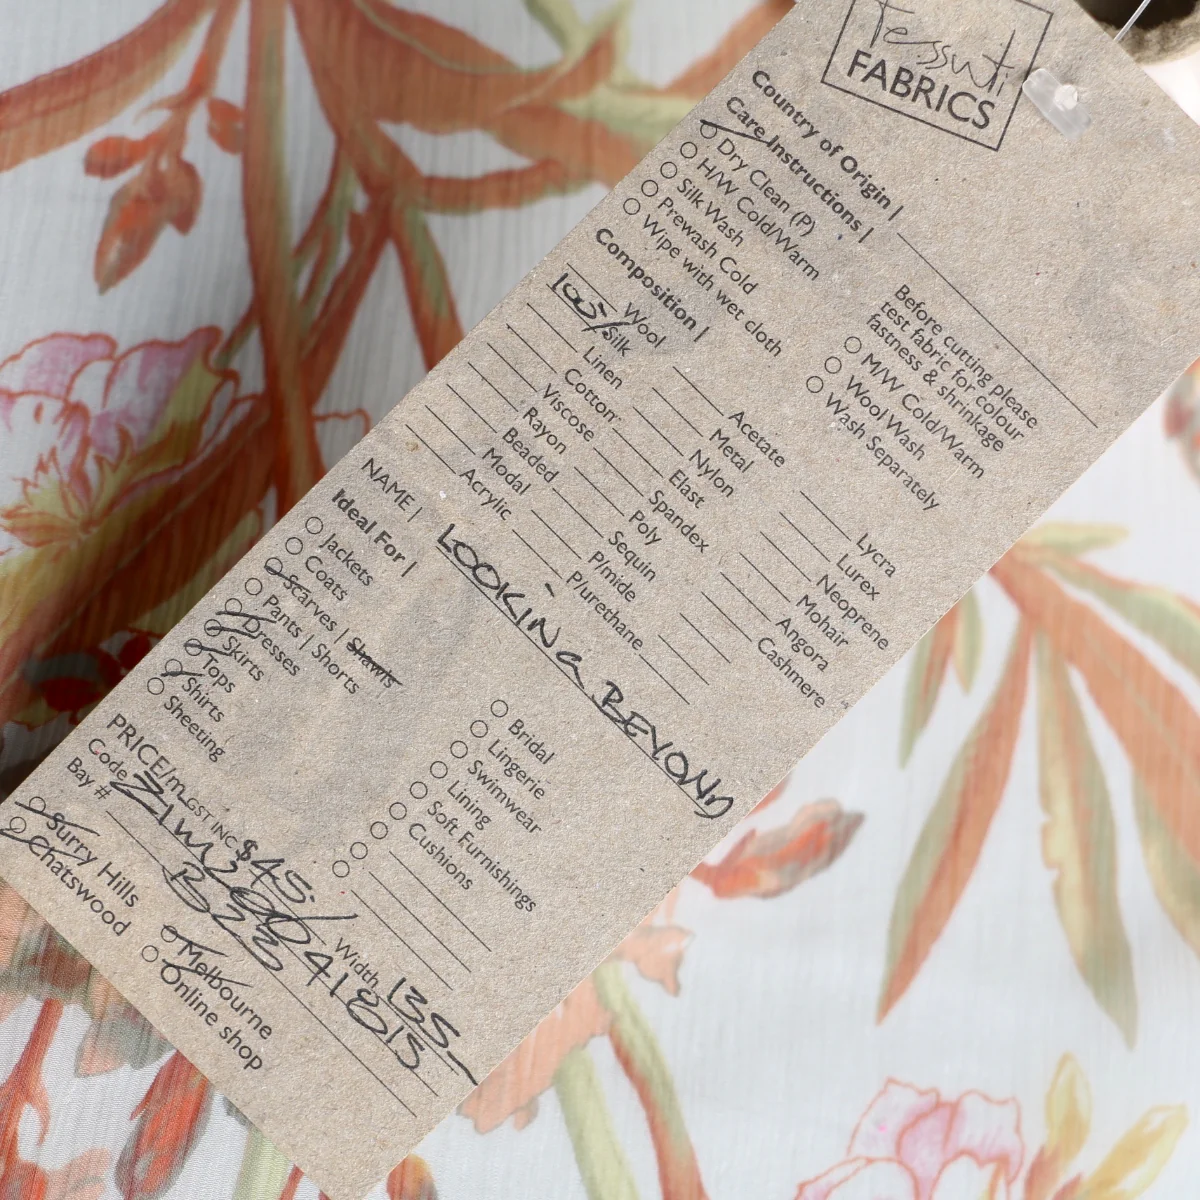 Tessuti
FABRICS
Country of Origin |
Care Instructions |
Dry Clean (P)
H/W Cold/Warm
Silk Wash
Prewash Cold
Wipe with wet cloth
Before cutting please
test fabric for colour
fastness & shrinkage
M/W Cold/Warm
Wool Wash
Wash Separately
Composition |
Wool
100% Silk
Linen
Cotton
Viscose
Rayon
Beaded
Modal
Acrylic
Acetate
Metal
Nylon
Elast
Spandex
Poly
Sequin
P/mide
P/urethane
Lycra
Lurex
Neoprene
Mohair
Angora
Cashmere
NAME | LOOKING BEYOND
Ideal For |
Jackets
Coats
Scarves | Shawls
Pants | Shorts
Dresses
Skirts
Tops
Shirts
Sheeting
Bridal
Lingerie
Swimwear
Lining
Soft Furnishings
Cushions
PRICE/m GST INC $45. Width 135
Code
Bay #
Surry Hills
Chatswood
Melbourne
Online shop